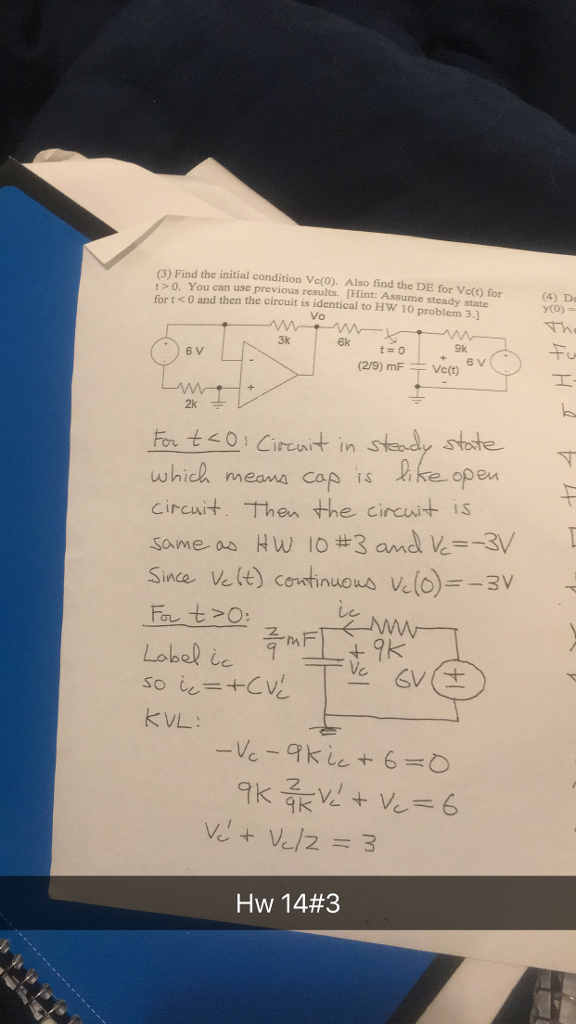 (3) Find the initial condition Vc(0). Also find the DE for Vc(t) for
t > 0. You can use previous results. [Hint: Assume steady state
for t < 0 and then the circuit is identical to HW 10 problem 3.]
(4) De
y(0) =
The
Fu
I-
b
Vo
3k
6k
t = 0
9k
6 V
(2/9) mF
+
Vc(t)
-
6 V
-
+
2k
For t<0: Circuit in steady state
which means cap is like open
circuit. Then the circuit is
same as HW 10 #3 and Vc=-3V
Since Vc(t) continuous Vc(0)=-3V
For t>0:
Label ic
so ic=+CVc'
KVL:
ic
2/9 mF
+ 9K
Vc
-
6V
+
-
-Vc - 9K ic + 6 = 0
9K 2/9K Vc' + Vc = 6
Vc' + Vc/2 = 3
Hw 14#3